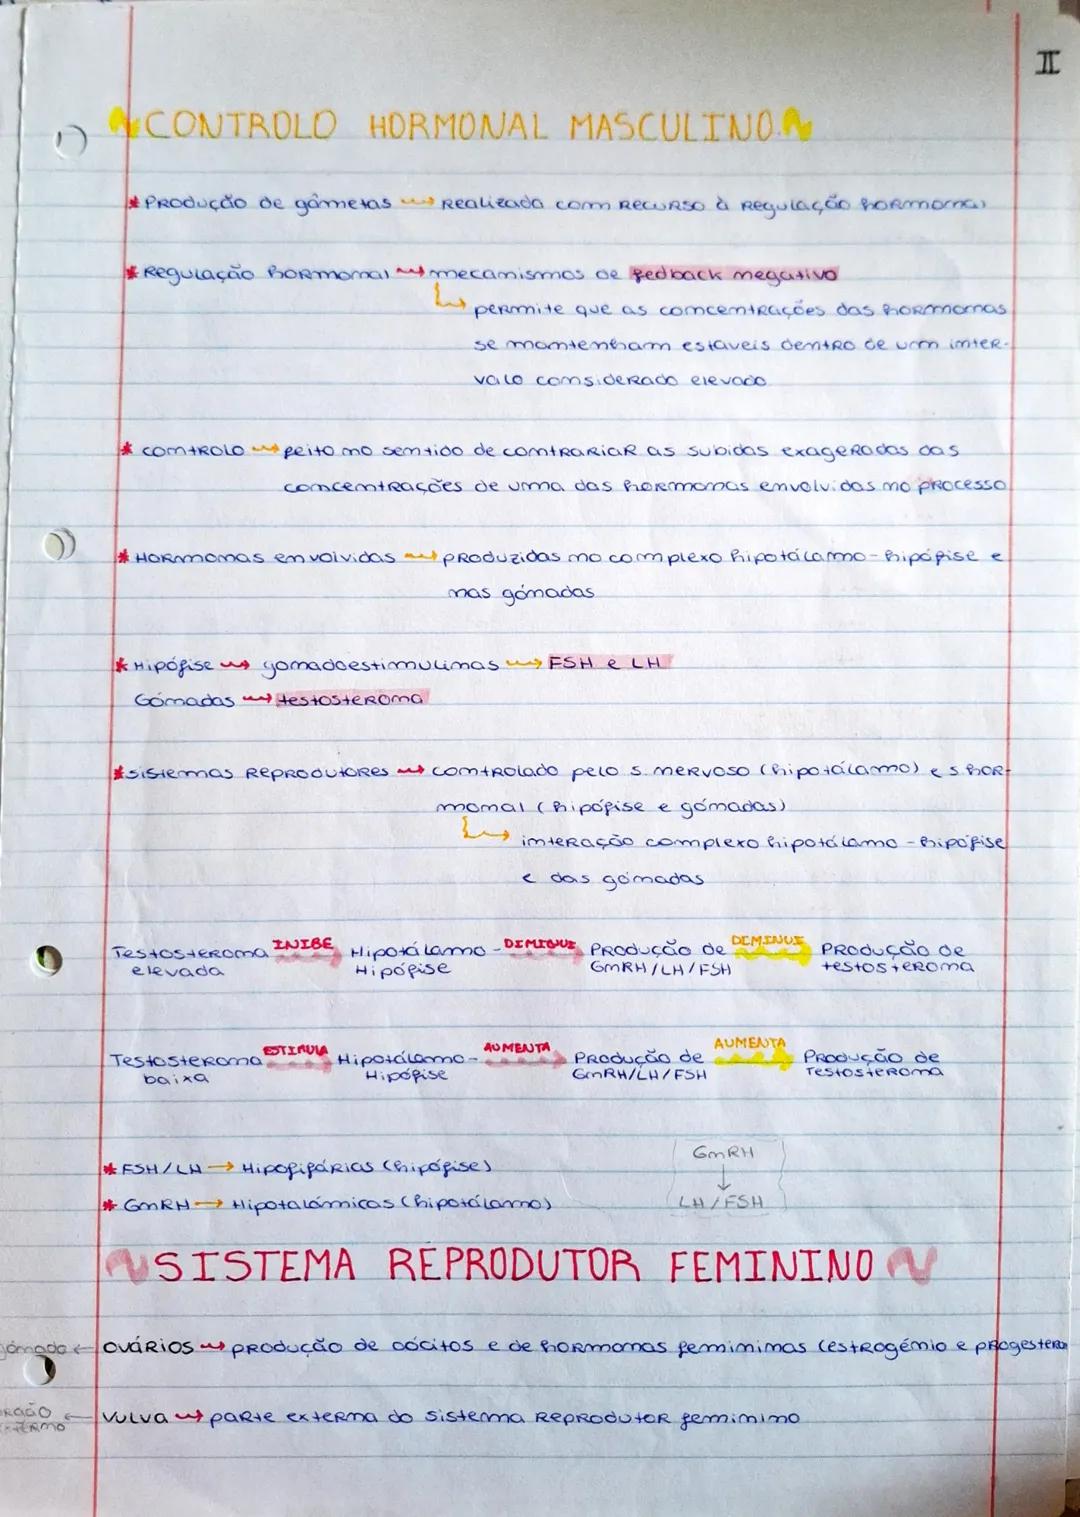 II
CONTROLO HORMONAL MASCULINO
* Produção de gâmetas → realizada com recurso à regulação hormonal
* Regulação hormonal → mecanismos de fedback negativo
permite que as concentrações das hormonas
se mantenham estáveis dentro de um inter-
valo considerado elevado
* controlo → feito no sentido de contrariar as subidas exageradas das
concentrações de uma das hormonas envolvidas no processo
* Hormonas envolvidas → produzidas no complexo hipotálamo-hipófise e
nas gónadas
* Hipófise → gonadoestimulinas → FSH e LH
Gónadas → testosterona
* sistemas reprodutores → controlado pelo s. nervoso (hipotálamo) e s hor-
monal (hipófise e gónadas)
interação complexo hipotálamo-hipófise
e das gónadas
Testosterona INIBE Hipotálamo- DIMINUE Produção de DIMINUI Produção de
elevada Hipófise GnRH/LH/FSH testosterona
Testosterona ESTIMULA Hipotálamo- AUMENTA Produção de AUMENTA Produção de
baixa Hipófise GnRH/LH/FSH Testosterona
* FSH/LH → Hipofifárias (hipófise)
* GnRH → Hipotalámicas (hipotálamo)
GnRH
↓
LH/FSH
SISTEMA REPRODUTOR FEMININO
ovários → produção de oócitos e de hormonas femininas (estrogénio e
vulva → parte externa do sistema reprodutor feminino